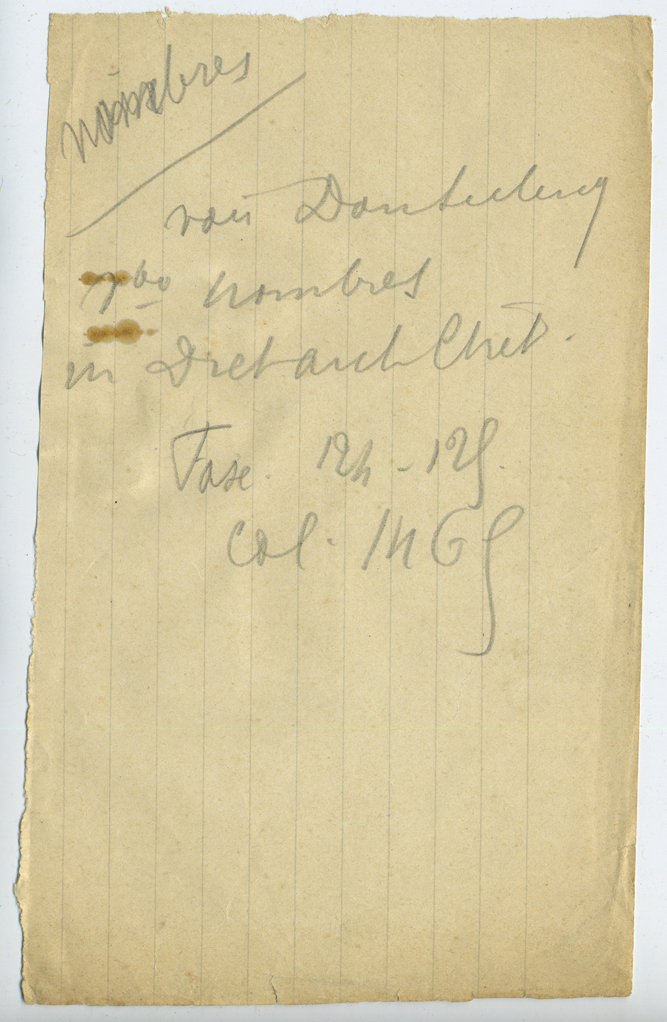 nombres
voir Dontenberg
vbo nombres
in Dict arch Chret.
Fasc. 124-125.
Col. 1465